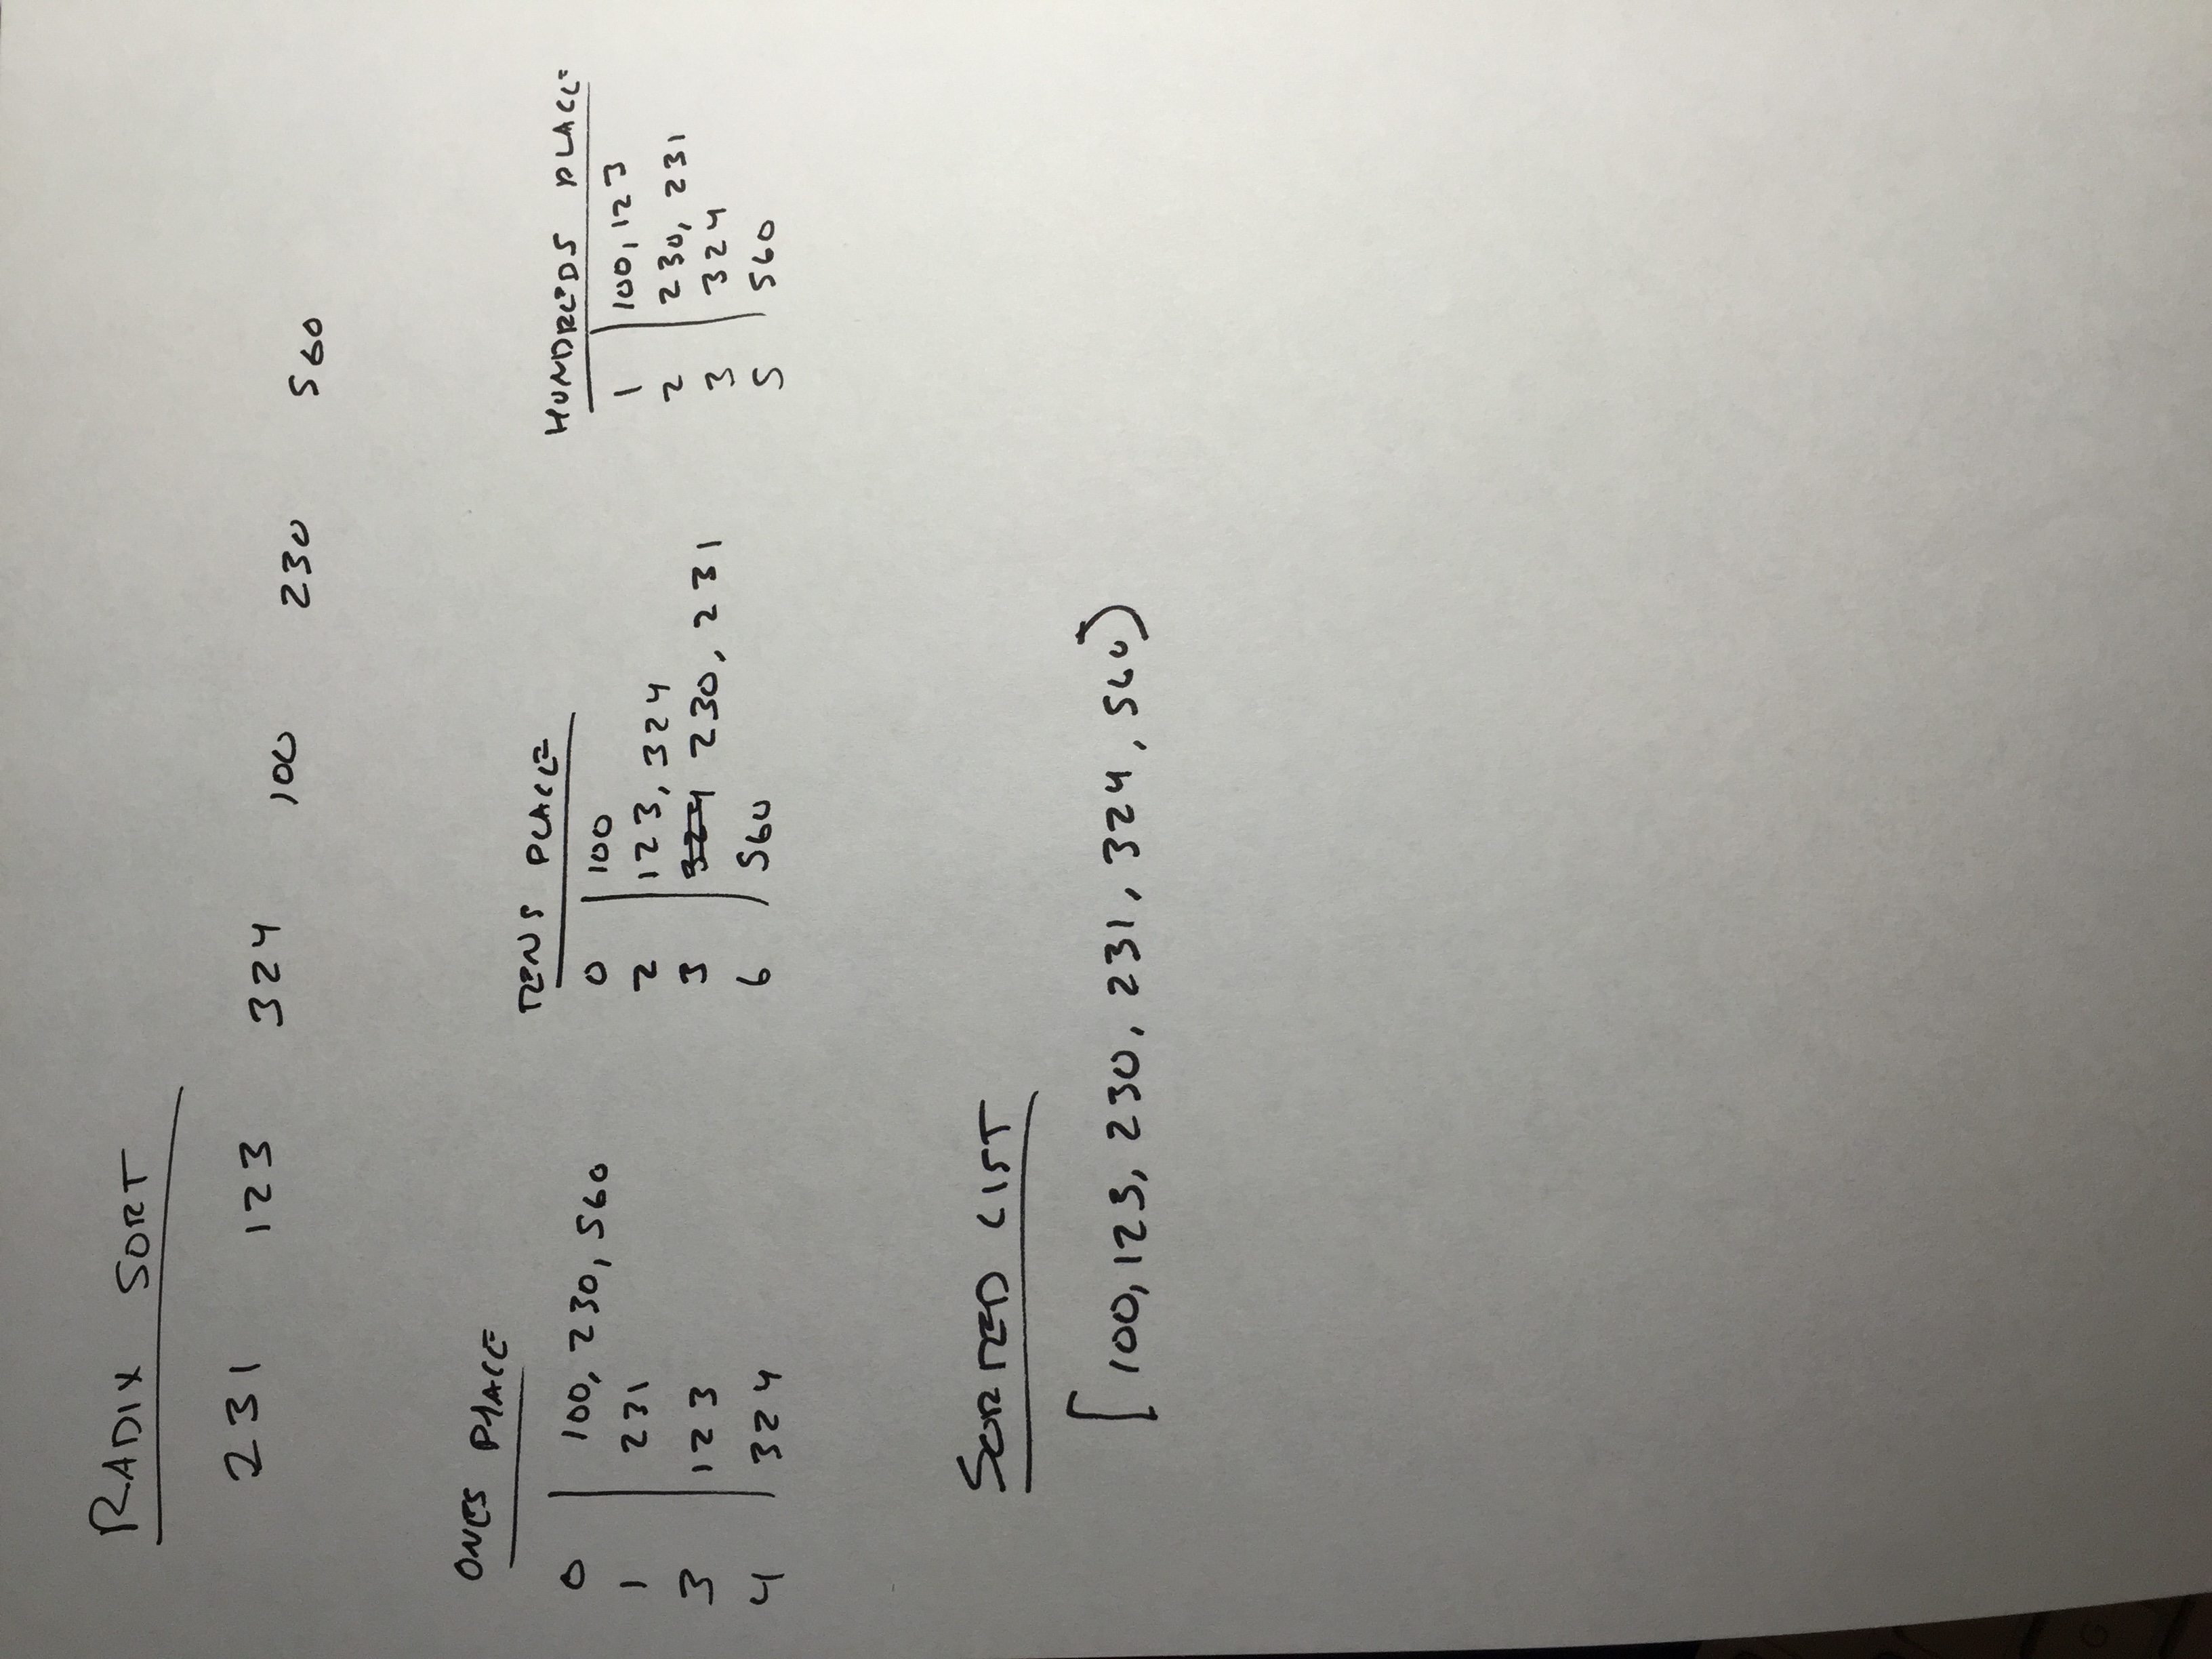 RADIX SORT
231 123 324 100 230 560
ONES PLACE
0 100, 230, 560
1 231
3 123
4 324
TENS PLACE
0 100
2 123, 324
3 324 230, 231
6 560
HUNDREDS PLACE
1 100, 123
2 230, 231
3 324
5 560
SORTED LIST
[100, 123, 230, 231, 324, 560)